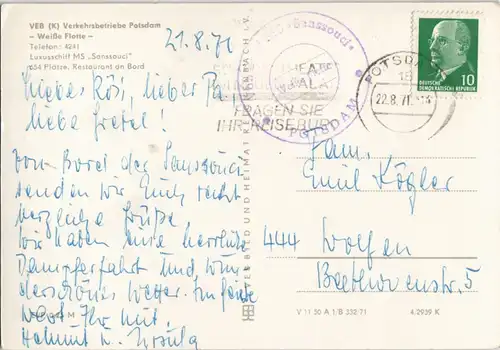 VEB (K) Verkehrsbetriebe Potsdam
– Weiße Flotte –
Telefon: 4241
Luxusschiff MS „Sanssouci“
654 Plätze, Restaurant an Bord
21.8.71
Liebe Rösi, lieber
liebe Gretel!
Von Bord der Sanssouci
senden wir Euch recht
herzliche Grüße,
wir haben eine herrliche
Dampferfahrt und wun-
derschönes Wetter. Im
Helmut u. Ursula
FRAGEN SIE
IHR REISEBÜRO
POTSDAM
POTSDAM
18
22.8.71
10
DEUTSCHE
DEMOKRATISCHE REPUBLIK
Fam.
Emil Kögler
444 Wolfen
Beethovenstr. 5
V 11 30 A 1/B 332 71
4/2939 K